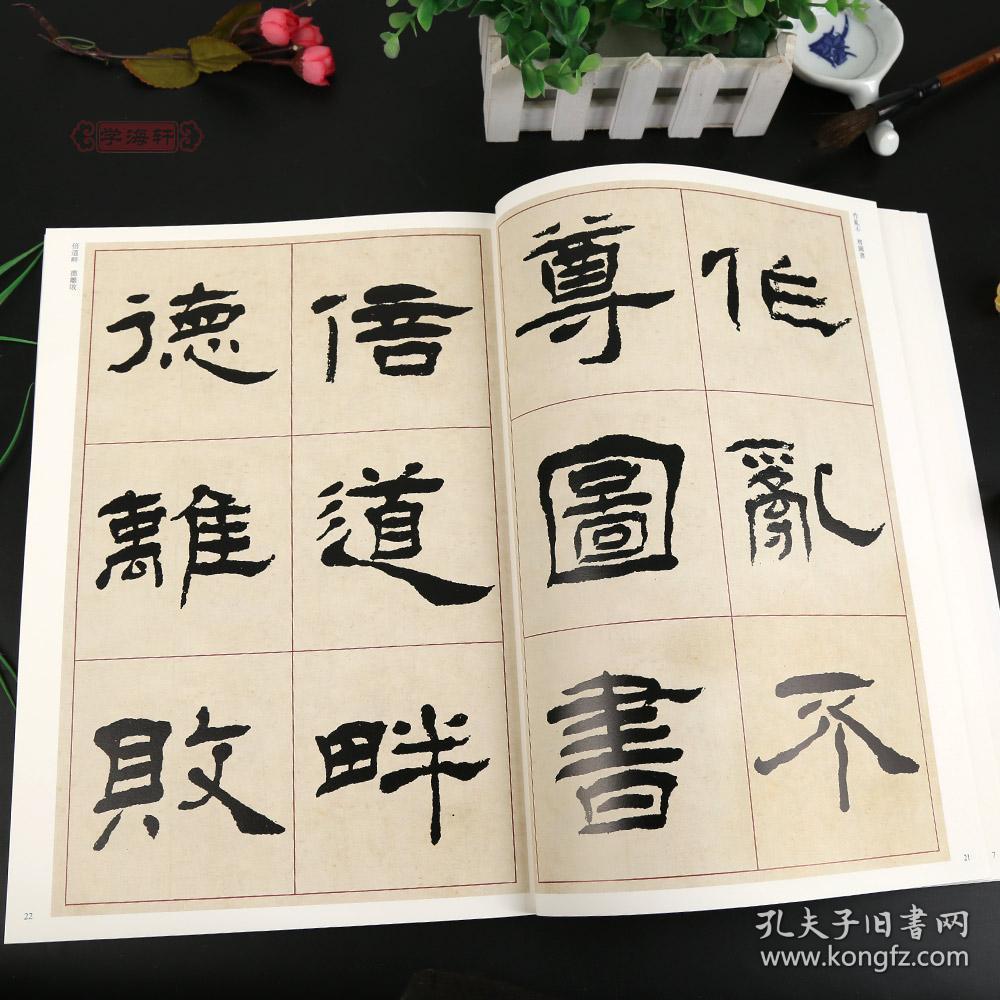 学海轩
作亂不 尊圖書
作亂不
尊圖書
21
7
倍道畔 德離敗
倍道畔
德離敗
22
孔夫子旧書网
www.kongfz.com